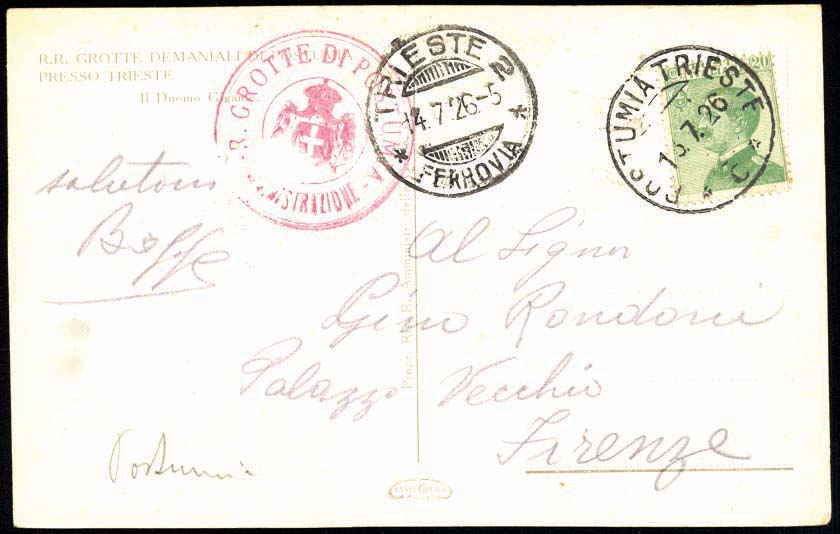 R.R. GROTTE DEMANIALI DI
PRESSO TRIESTE
Il Duomo
R.R. GROTTE DI POSTUMIA
AMMINISTRAZIONE
TRIESTE 2
14.7.26-5
FERROVIA
POSTUMIA TRIESTE
13.7.26
20
salutoni
Beffe
Al Signor
Gino Rondoni
Palazzo Vecchio
Firenze
Postumia
Propr. RR.